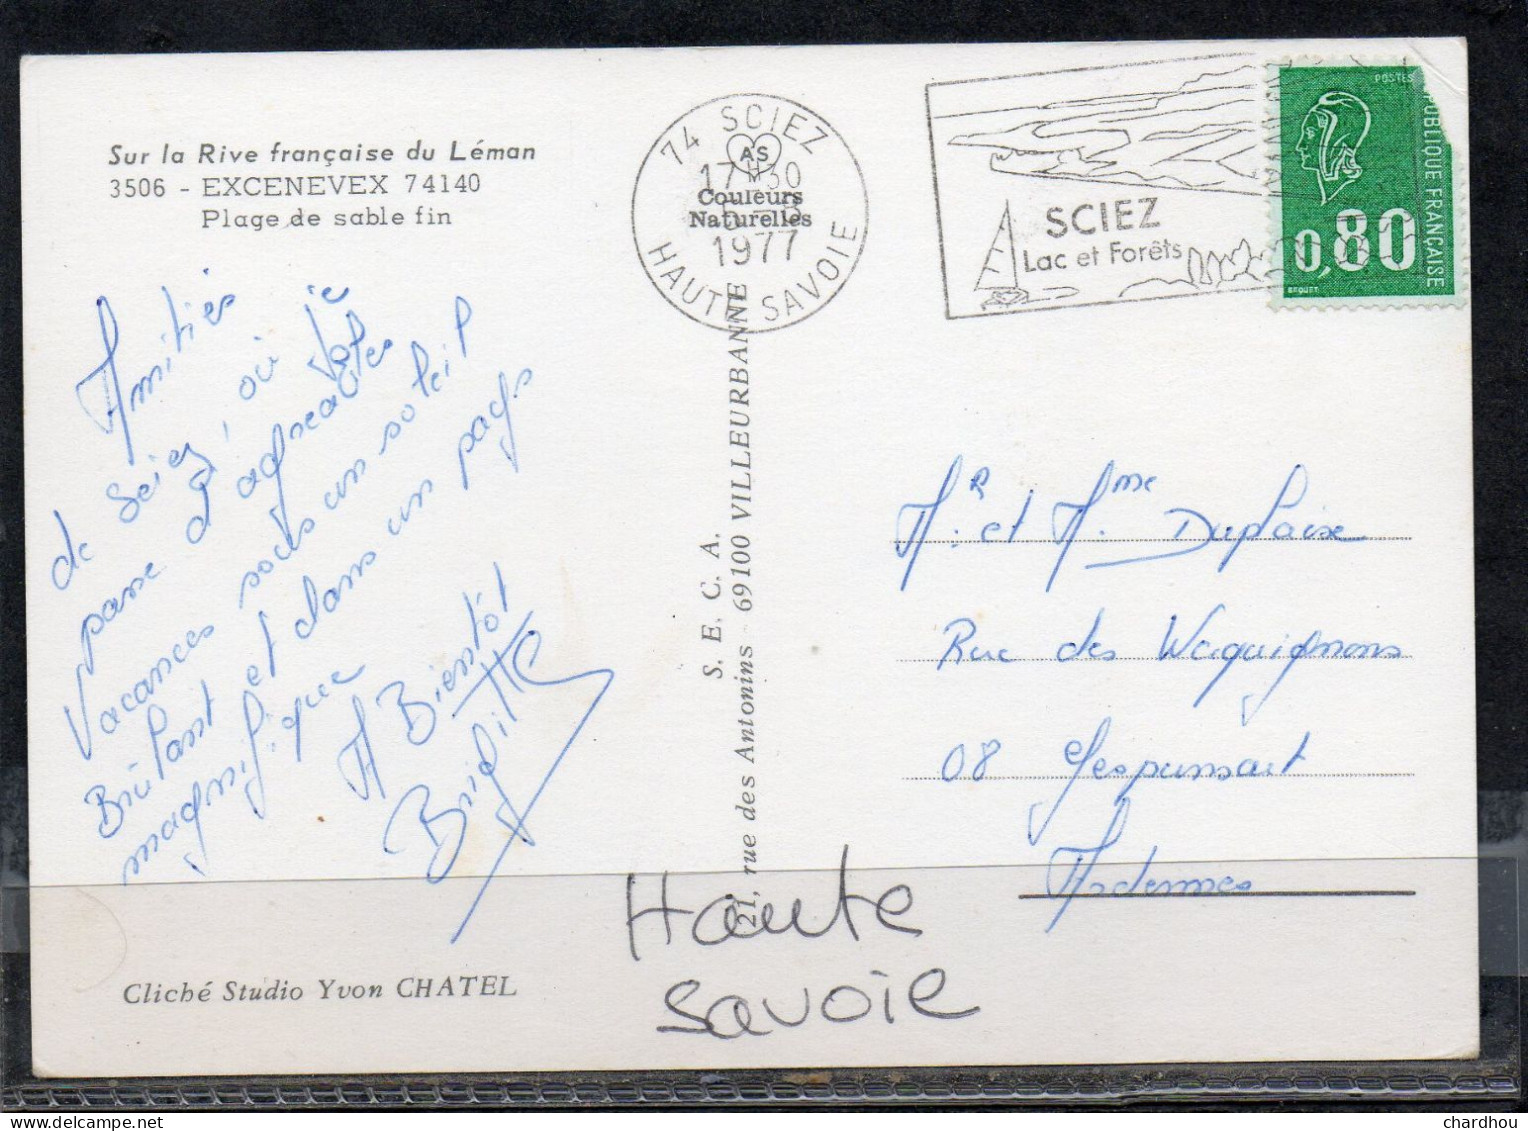 Sur la Rive française du Léman
3506 - EXCENEVEX 74140
Plage de sable fin
Amitiés
de Sciez, où je
passe d'agréables
Vacances sous un soleil
Brûlant et dans un pays
magnifique
A Bientôt
Brigitte
Cliché Studio Yvon CHATEL
74 SCIEZ
AS
17H30
Couleurs
Naturelles
1977
HAUTE SAVOIE
S. E. C. A.
21, rue des Antonins - 69100 VILLEURBANNE
Haute
Savoie
SCIEZ
Lac et Forêts
POSTES
RÉPUBLIQUE FRANÇAISE
0,80
BEQUET
Mr. et Mme Duplaix
Rue des Waquignons
08 Gespunsart
Ardennes
chardhou